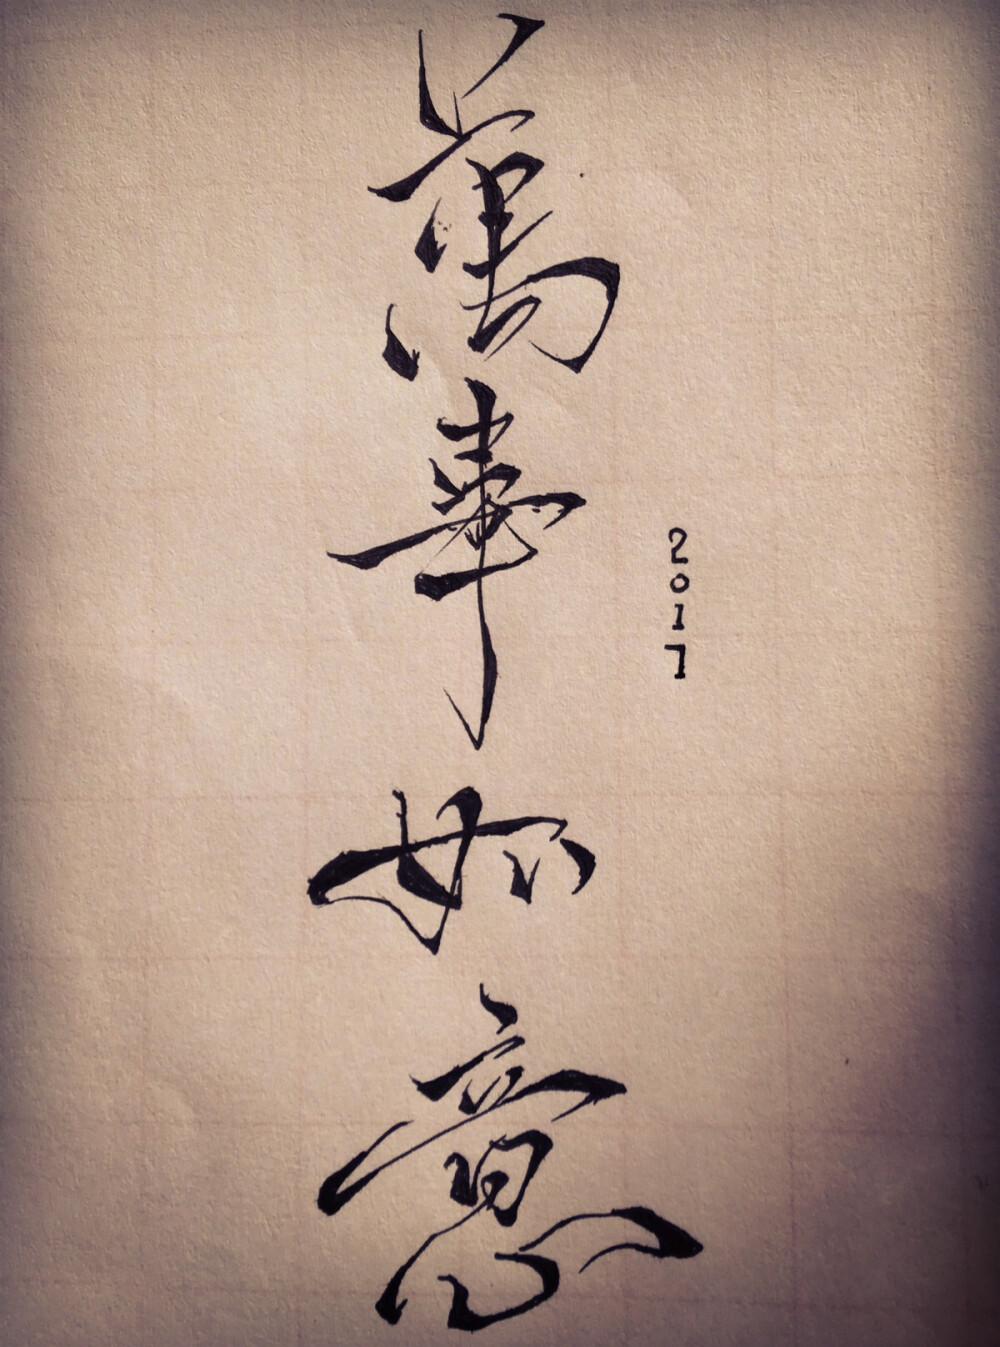 萬事如意
2017